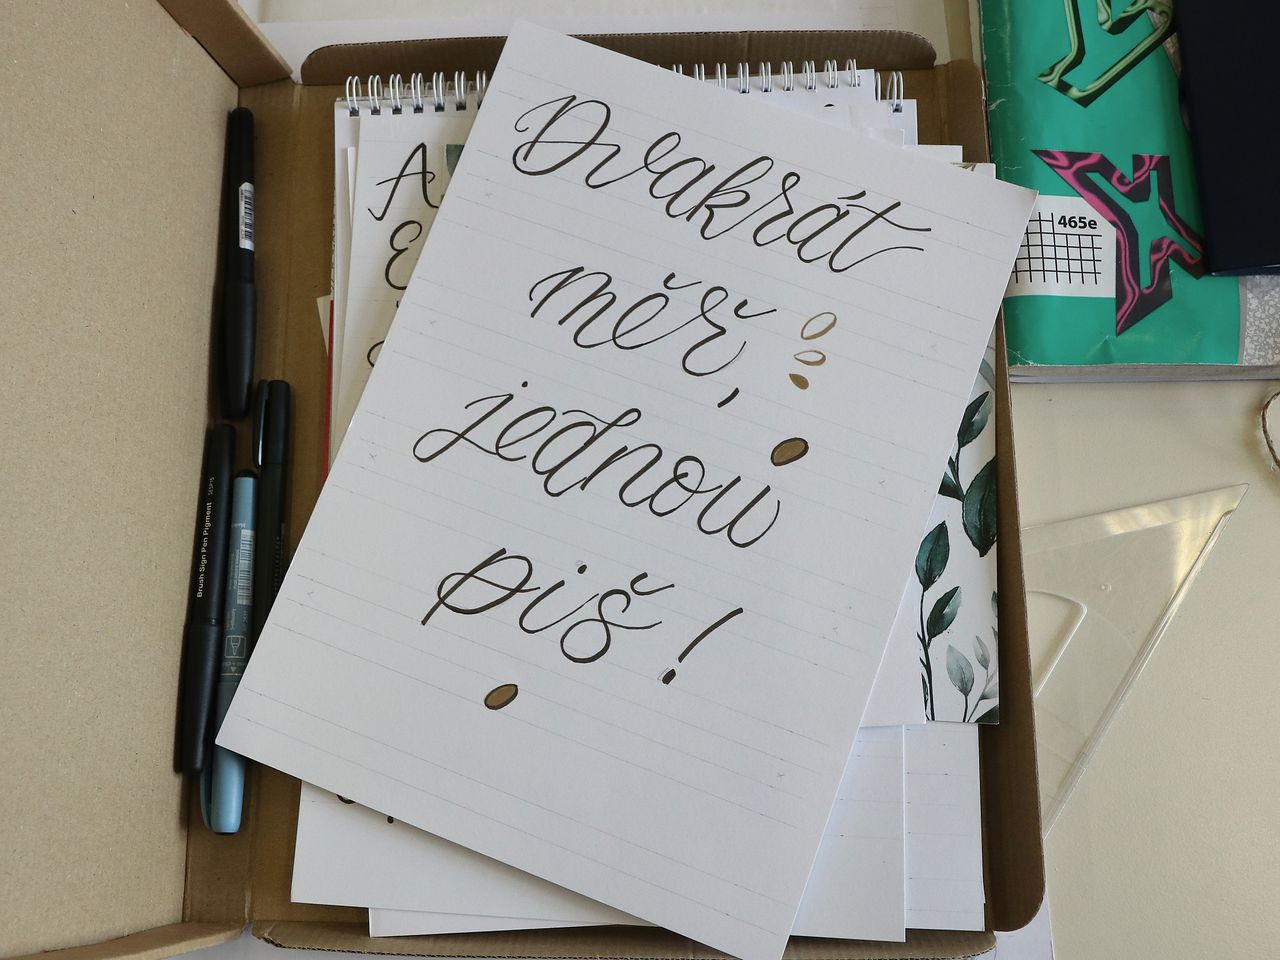 Dvakrát
měř,
jednou
piš!
A
E
465e
Brush Sign Pen Pigment